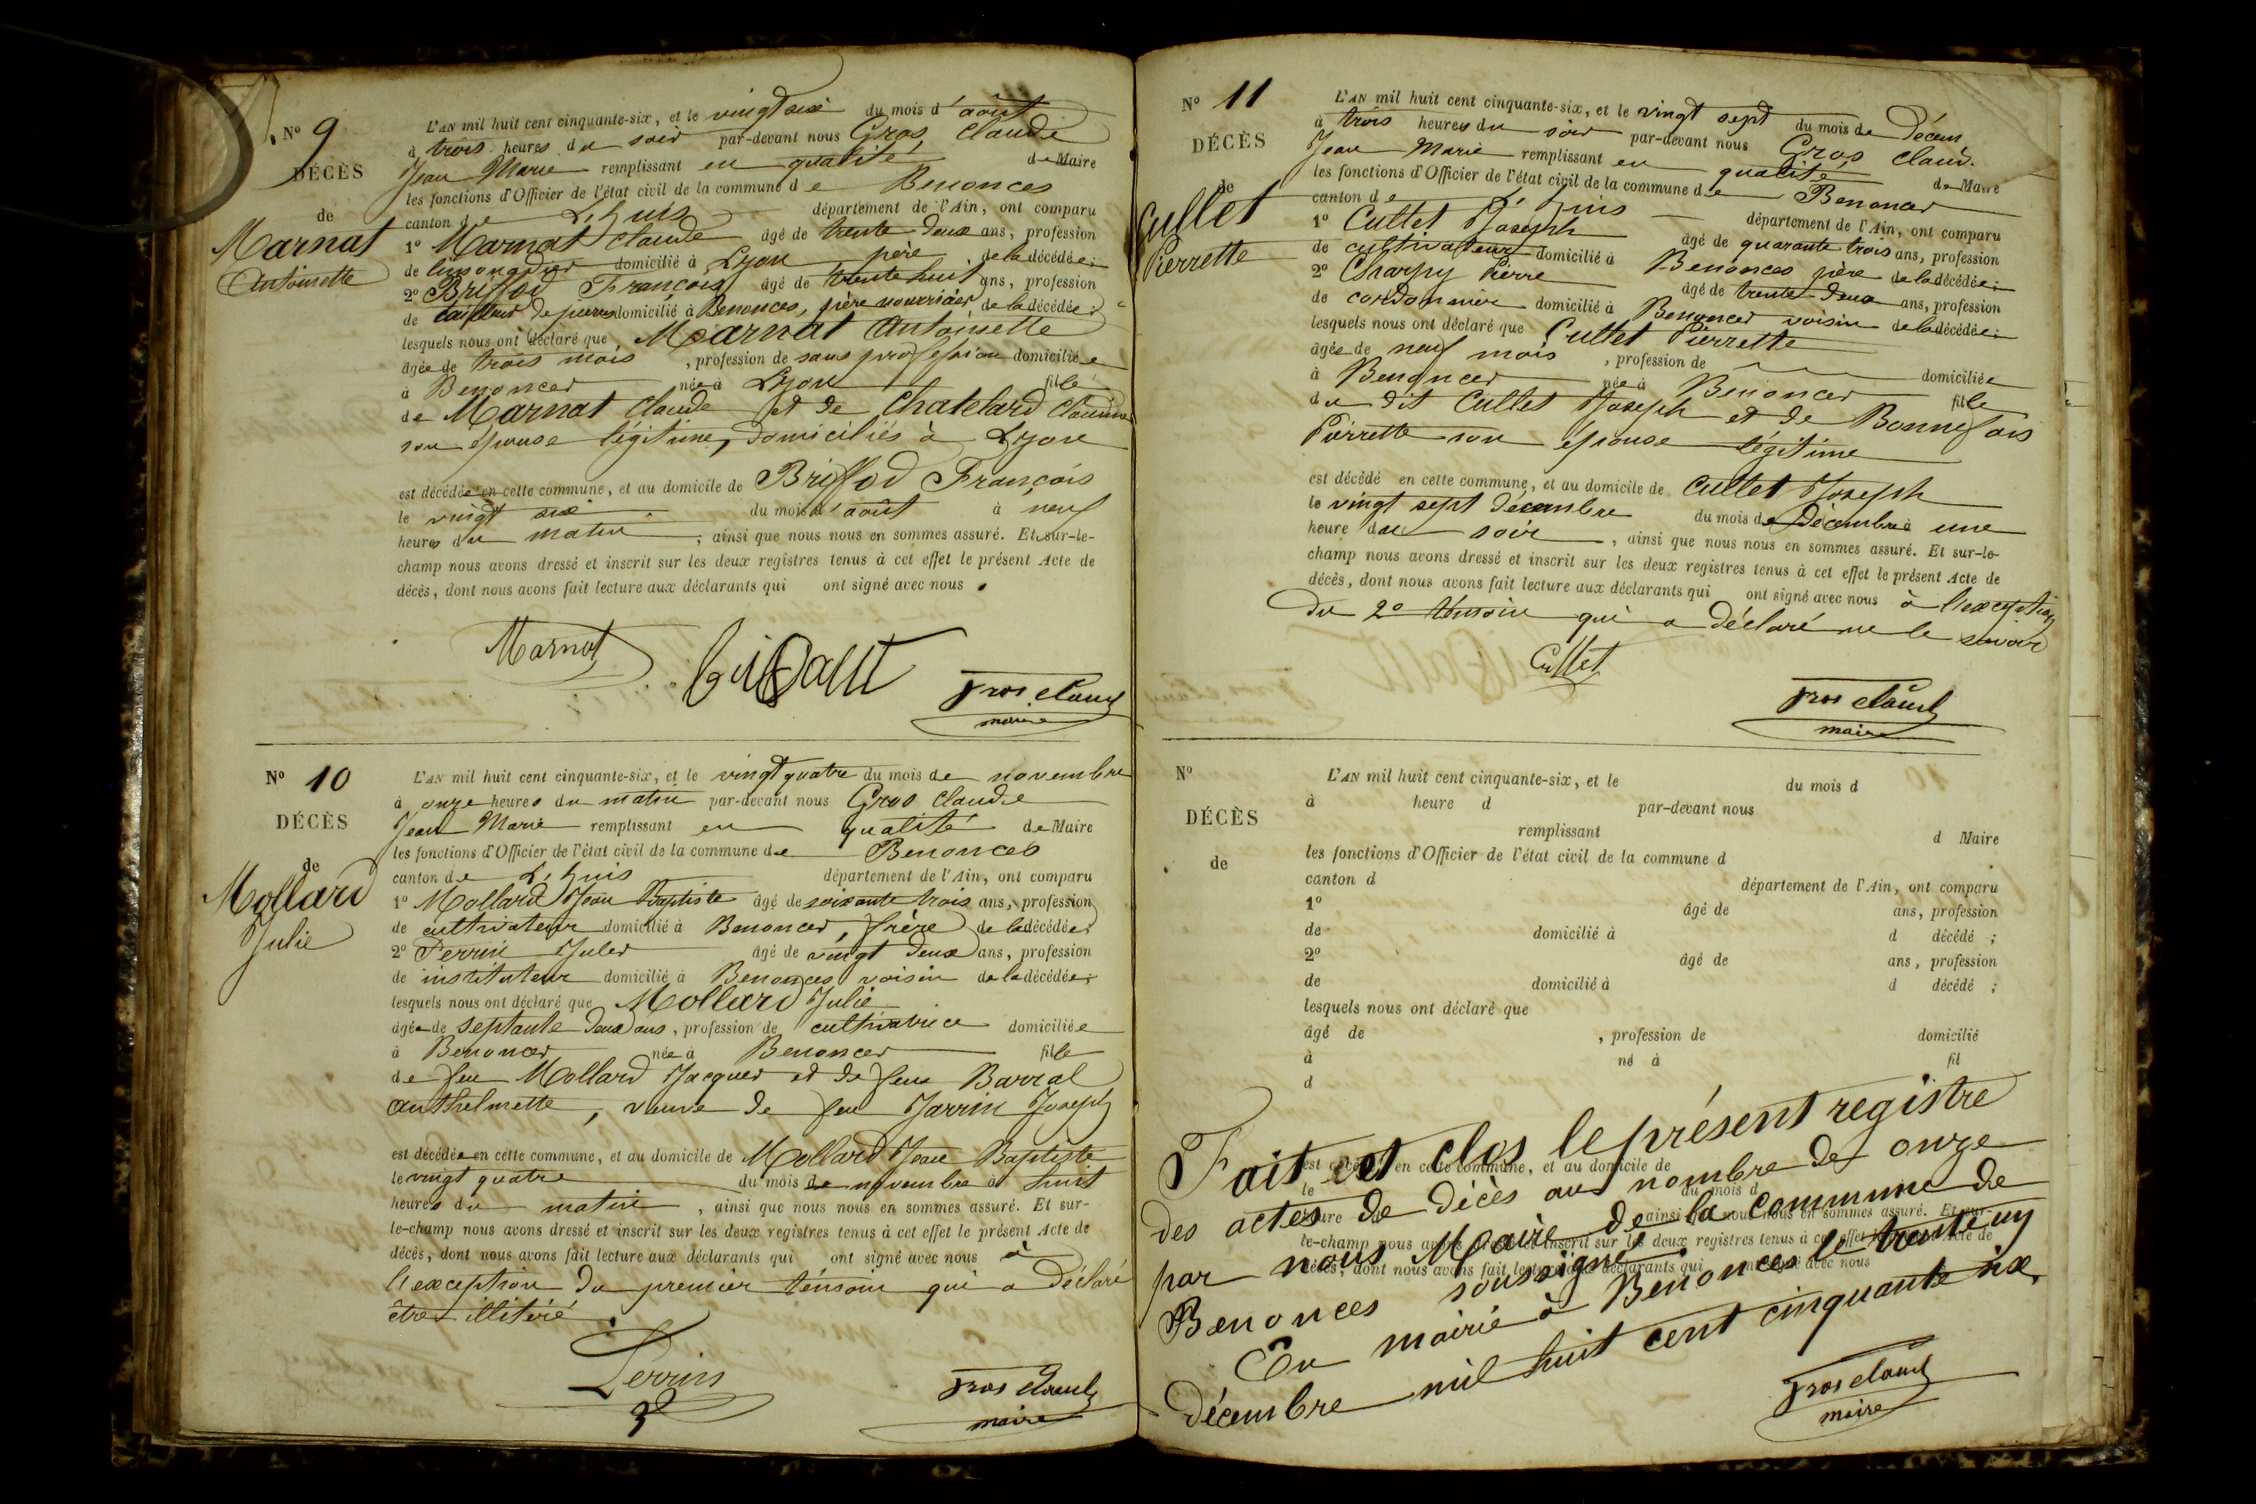 N° 9
DÉCÈS
de
Marnat
Antoinette
L'AN mil huit cent cinquante-six, et le vingt six du mois d'août
à trois heures du soir par-devant nous Gros Claude
Jean Marie remplissant en qualité de Maire
les fonctions d'Officier de l'état civil de la commune de Benonces
canton de L'huis département de l'Ain, ont comparu
1° Marnat Claude âgé de trente deux ans, profession
de domicilié à Lyon père de la décédée;
2° Briffod François âgé de trente huit ans, profession
de tailleur de pierres domicilié à Benonces, père nourricier de la décédée;
lesquels nous ont déclaré que Marnat Antoinette
âgée de trois mois, profession de sans profession domiciliée
à Benonces née à Lyon fille
de Marnat Claude et de Chatelard Claudine
son épouse légitime, domiciliés à Lyon
est décédée en cette commune, et au domicile de Briffod François
le vingt six du mois d'août à neuf
heures du matin, ainsi que nous nous en sommes assuré. Et sur-le-
champ nous avons dressé et inscrit sur les deux registres tenus à cet effet le présent Acte de
décès, dont nous avons fait lecture aux déclarants qui ont signé avec nous.
Marnat
Gros Claude
maire
N° 10
DÉCÈS
de
Mollard
Julie
L'AN mil huit cent cinquante-six, et le vingt quatre du mois de novembre
à onze heures du matin par-devant nous Gros Claude
Jean Marie remplissant en qualité de Maire
les fonctions d'Officier de l'état civil de la commune de Benonces
canton de L'huis département de l'Ain, ont comparu
1° Mollard Jean Baptiste âgé de soixante trois ans, profession
de cultivateur domicilié à Benonces, frère de la décédée;
2° Perrin Jules âgé de vingt deux ans, profession
de instituteur domicilié à Benonces voisin de la décédée;
lesquels nous ont déclaré que Mollard Julie
âgée de septante deux ans, profession de cultivatrice domiciliée
à Benonces née à Benonces fille
de feu Mollard Jacques et de feue Barral
Anthelmette, veuve de feu Jarrin Joseph
est décédée en cette commune, et au domicile de Mollard Jean Baptiste
le vingt quatre du mois de novembre à huit
heures du matin, ainsi que nous nous en sommes assuré. Et sur-
le-champ nous avons dressé et inscrit sur les deux registres tenus à cet effet le présent Acte de
décès, dont nous avons fait lecture aux déclarants qui ont signé avec nous à
l'exception du premier témoin qui a déclaré
être illitéré.
Perrin
Gros Claude
maire
N° 11
DÉCÈS
de
Cullet
Pierrette
L'AN mil huit cent cinquante-six, et le vingt sept du mois de Décem
à trois heures du soir par-devant nous Gros Claud.
Jean Marie remplissant en qualité de Maire
les fonctions d'Officier de l'état civil de la commune de Benonces
canton de L'huis département de l'Ain, ont comparu
1° Cullet Joseph âgé de quarante trois ans, profession
de cultivateur domicilié à Benonces père de la décédée;
2° Charpy Pierre âgé de trente deux ans, profession
de cordonnier domicilié à Benonces voisin de la décédée;
lesquels nous ont déclaré que Cullet Pierrette
âgée de neuf mois, profession de domiciliée
à Benonces née à Benonces fille
du dit Cullet Joseph et de Bonnefois
Pierrette son épouse légitime
est décédé en cette commune, et au domicile de Cullet Joseph
le vingt sept décembre du mois de Décembre à une
heure du soir, ainsi que nous nous en sommes assuré. Et sur-le-
champ nous avons dressé et inscrit sur les deux registres tenus à cet effet le présent Acte de
décès, dont nous avons fait lecture aux déclarants qui ont signé avec nous à l'exception
du 2° témoin qui a déclaré ne le savoir
Cullet
Gros Claude
maire
N°
DÉCÈS
de
L'AN mil huit cent cinquante-six, et le du mois d
à heure d par-devant nous
remplissant d Maire
les fonctions d'Officier de l'état civil de la commune d
canton d département de l'Ain, ont comparu
1° âgé de ans, profession
de domicilié à d décédé ;
2° âgé de ans, profession
de domicilié à d décédé ;
lesquels nous ont déclaré que
âgé de , profession de domicilié
à né à fil
d
est décédé en cette commune, et au domicile de
le du mois d
heure d ainsi que nous nous en sommes assuré. Et sur-
le-champ nous avons dressé et inscrit sur les deux registres tenus à cet effet le présent Acte de
décès, dont nous avons fait lecture aux déclarants qui ont signé avec nous
Fait et clos le présent registre
des actes de décès au nombre de onze
par nous Maire de la commune de
Benonces soussigné.
En mairie à Benonces le trente un
décembre mil huit cent cinquante six.
Gros Claude
maire